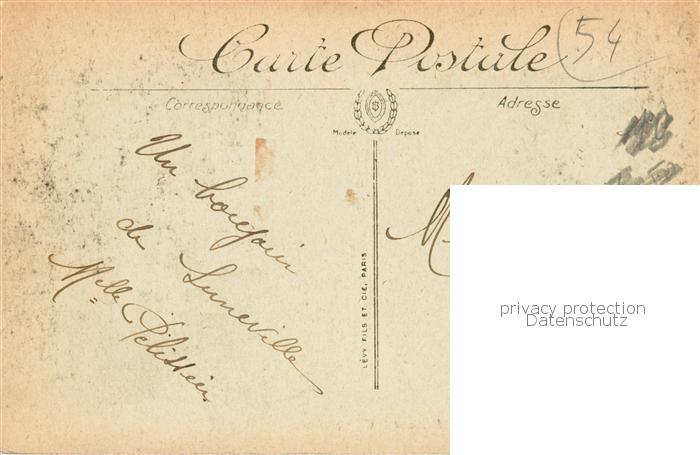 Carte Postale
54
Correspondance
Adresse
Modèle Déposé
Un bonjour
de Luneville
Melle Pélissier
LÉVY FILS ET CIE, PARIS
privacy protection
Datenschutz